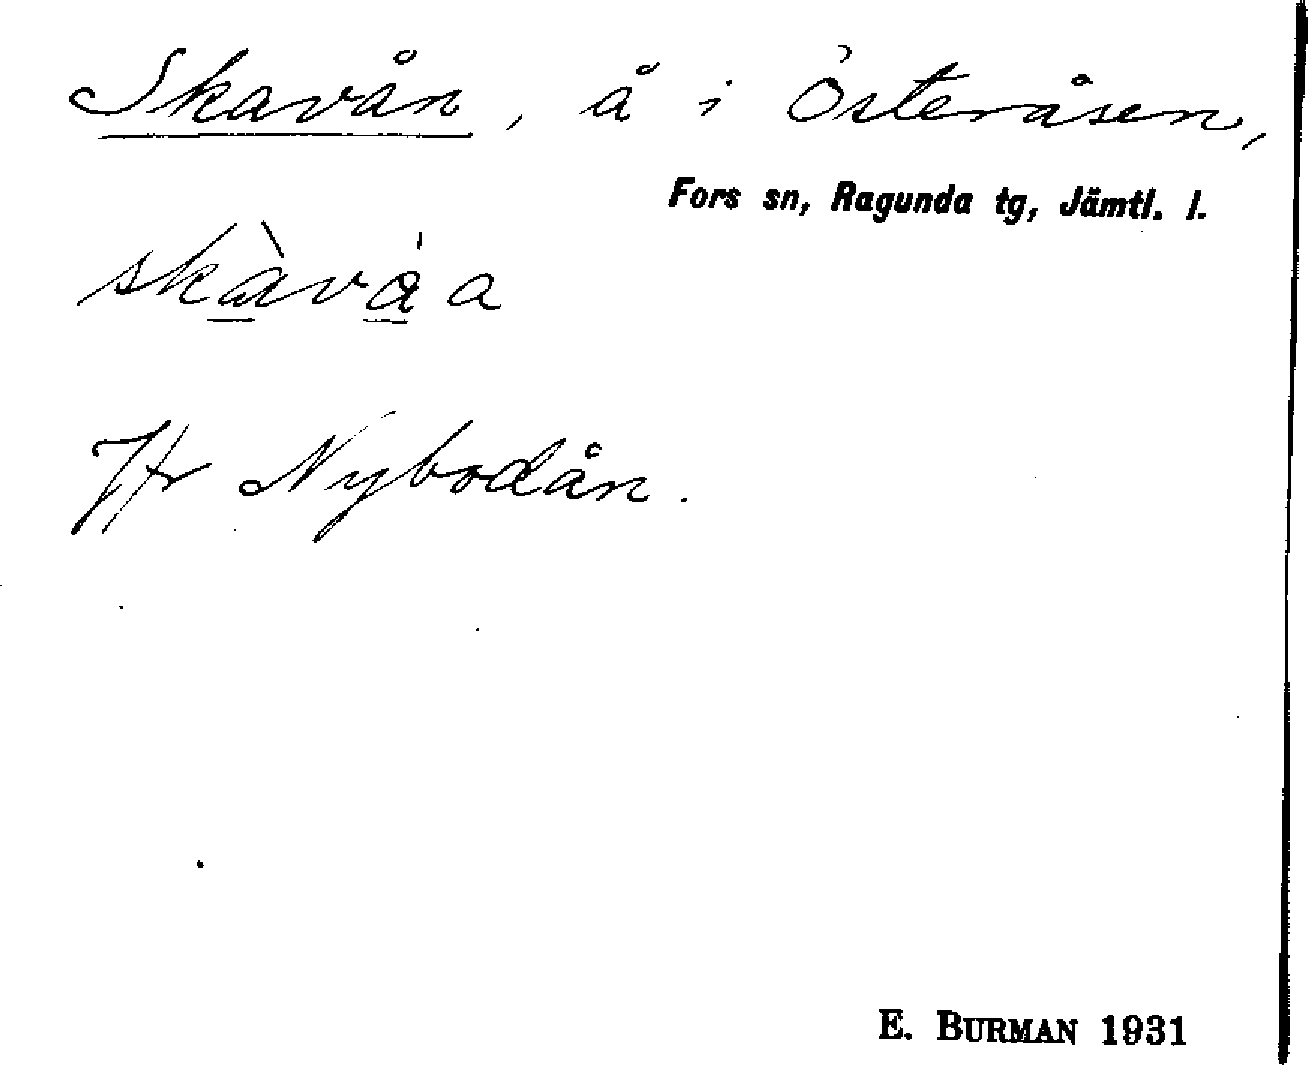 Skavån, å i Österåsen,
Fors sn, Ragunda tg, Jämtl. l.
skàvá a
Jfr Nybodån.
E. BURMAN 1931